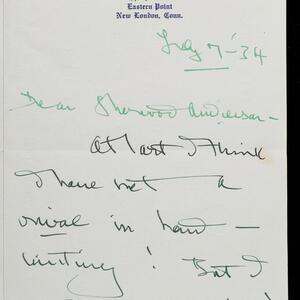 Eastern Point
New London, Conn.
July 7 - 34
Dear Sherwood Anderson -
At last I think
I have met a
rival in hand -
writing! But I